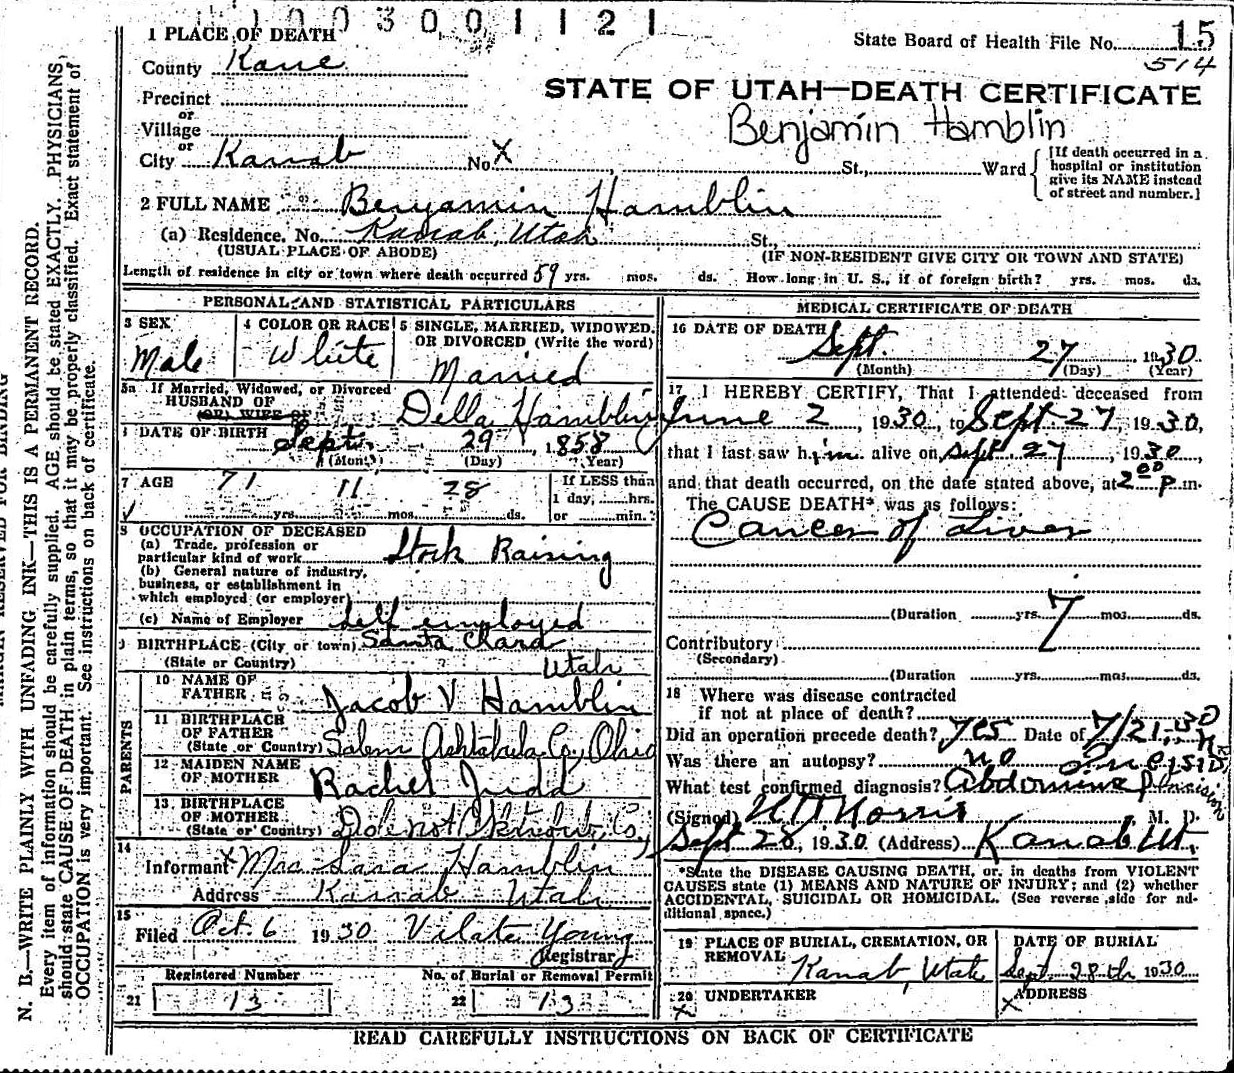 1003001121
1 PLACE OF DEATH
State Board of Health File No. 15
514
County Kane
STATE OF UTAH—DEATH CERTIFICATE
Precinct
or
Benjamin Hamblin
Village
or
City Kanab No. X St., Ward
[If death occurred in a hospital or institution give its NAME instead of street and number.]
2 FULL NAME Benjamin Hamblin
(a) Residence. No. Kanab, Utah St.,
(USUAL PLACE OF ABODE) (IF NON-RESIDENT GIVE CITY OR TOWN AND STATE)
Length of residence in city or town where death occurred 59 yrs. mos. ds. How long in U. S., if of foreign birth? yrs. mos. ds.
PERSONAL AND STATISTICAL PARTICULARS
3 SEX
Male
4 COLOR OR RACE
White
5 SINGLE, MARRIED, WIDOWED, OR DIVORCED (Write the word)
Married
5a If Married, Widowed, or Divorced
HUSBAND OF
(OR) WIFE OF
Della Hamblin
6 DATE OF BIRTH Sept. 29, 1858
(Month) (Day) (Year)
7 AGE 71 yrs. 11 mos. 28 ds.
If LESS than
1 day, hrs.
or min.
8 OCCUPATION OF DECEASED
(a) Trade, profession or
particular kind of work Stock Raising
(b) General nature of industry,
business, or establishment in
which employed (or employer)
(c) Name of Employer Self employed
9 BIRTHPLACE (City or town) Santa Clara
(State or Country) Utah
PARENTS
10 NAME OF
FATHER Jacob V Hamblin
11 BIRTHPLACE
OF FATHER
(State or Country) Salem Ashtabula Co, Ohio
12 MAIDEN NAME
OF MOTHER Rachel Judd
13 BIRTHPLACE
OF MOTHER
(State or Country) Do not
14
Informant X Mrs Sara Hamblin
Address Kanab Utah
15
Filed Oct. 6 1930 Vilate Young
Registrar
Registered Number No. of Burial or Removal Permit
21 13 22 13
MEDICAL CERTIFICATE OF DEATH
16 DATE OF DEATH
Sept. 27, 1930
(Month) (Day) (Year)
17 I HEREBY CERTIFY, That I attended deceased from
June 2, 1930, to Sept 27, 1930,
that I last saw him alive on Sept 27, 1930,
and that death occurred, on the date stated above, at 2 00 P.m.
The CAUSE DEATH* was as follows:
Cancer of Liver
(Duration yrs. 7 mos. ds.
Contributory
(Secondary)
(Duration yrs. mos. ds.
18 Where was disease contracted
if not at place of death?
Did an operation precede death? yes Date of 7/21-30
Was there an autopsy? no
What test confirmed diagnosis? Abdominal Incision
(Signed) Norris, M. D.
Sept 28, 1930 (Address) Kanab Ut.
*State the DISEASE CAUSING DEATH, or, in deaths from VIOLENT
CAUSES state (1) MEANS AND NATURE OF INJURY; and (2) whether
ACCIDENTAL, SUICIDAL OR HOMICIDAL. (See reverse side for ad-
ditional space.)
19 PLACE OF BURIAL, CREMATION, OR
REMOVAL Kanab, Utah
DATE OF BURIAL
Sept. 28th 1930
20 UNDERTAKER
X
ADDRESS
X
READ CAREFULLY INSTRUCTIONS ON BACK OF CERTIFICATE
N. B.—WRITE PLAINLY WITH UNFADING INK—THIS IS A PERMANENT RECORD.
Every item of information should be carefully supplied. AGE should be stated EXACTLY. PHYSICIANS
should state CAUSE OF DEATH in plain terms, so that it may be properly classified. Exact statement of
OCCUPATION is very important. See instructions on back of certificate.